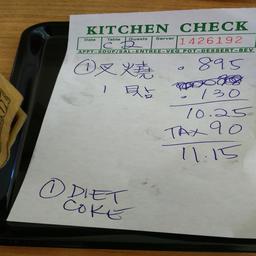 KITCHEN CHECK
Date Table Guests Server 1426192
C 2
APPT-SOUP/SAL-ENTREE-VEG POT-DESSERT-BEV
① 叉燒 . 895
1 貼 . 130
10.25
TAX 90
11.15
① DIET
COKE